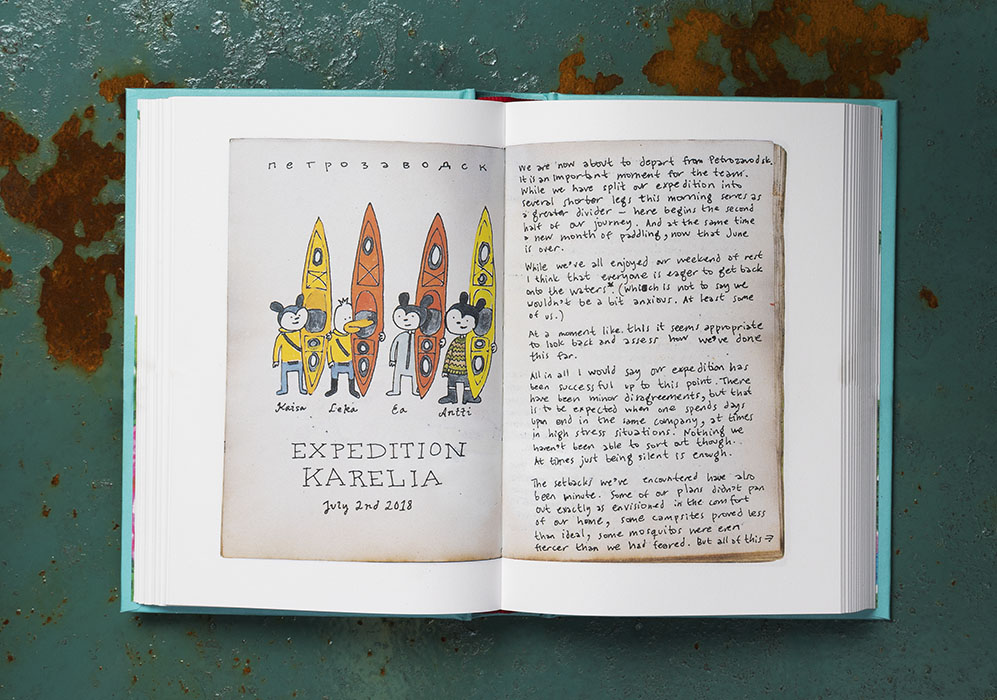 петрозаводск
Kaisa Leka Ea Antti
EXPEDITION
KARELIA
July 2nd 2018
We are now about to depart from Petrozavodsk.
It is an important moment for the team.
While we have split our expedition into
several shorter legs this morning serves as
a greater divider – here begins the second
half of our journey. And at the same time
a new month of paddling, now that June
is over.
While we've all enjoyed our weekend of rest
I think that everyone is eager to get back
onto the waters. (Which is not to say we
wouldn't be a bit anxious. At least some
of us.)
At a moment like this it seems appropriate
to look back and assess how we've done
this far.
All in all I would say our expedition has
been successful up to this point. There
have been minor disagreements, but that
is to be expected when one spends days
upon end in the same company, at times
in high stress situations. Nothing we
haven't been able to sort out though.
At times just being silent is enough.
The setbacks we've encountered have also
been minute. Some of our plans didn't pan
out exactly as envisioned in the comfort
of our home, some campsites proved less
than ideal, some mosquitos were even
fiercer than we had feared. But all of this →